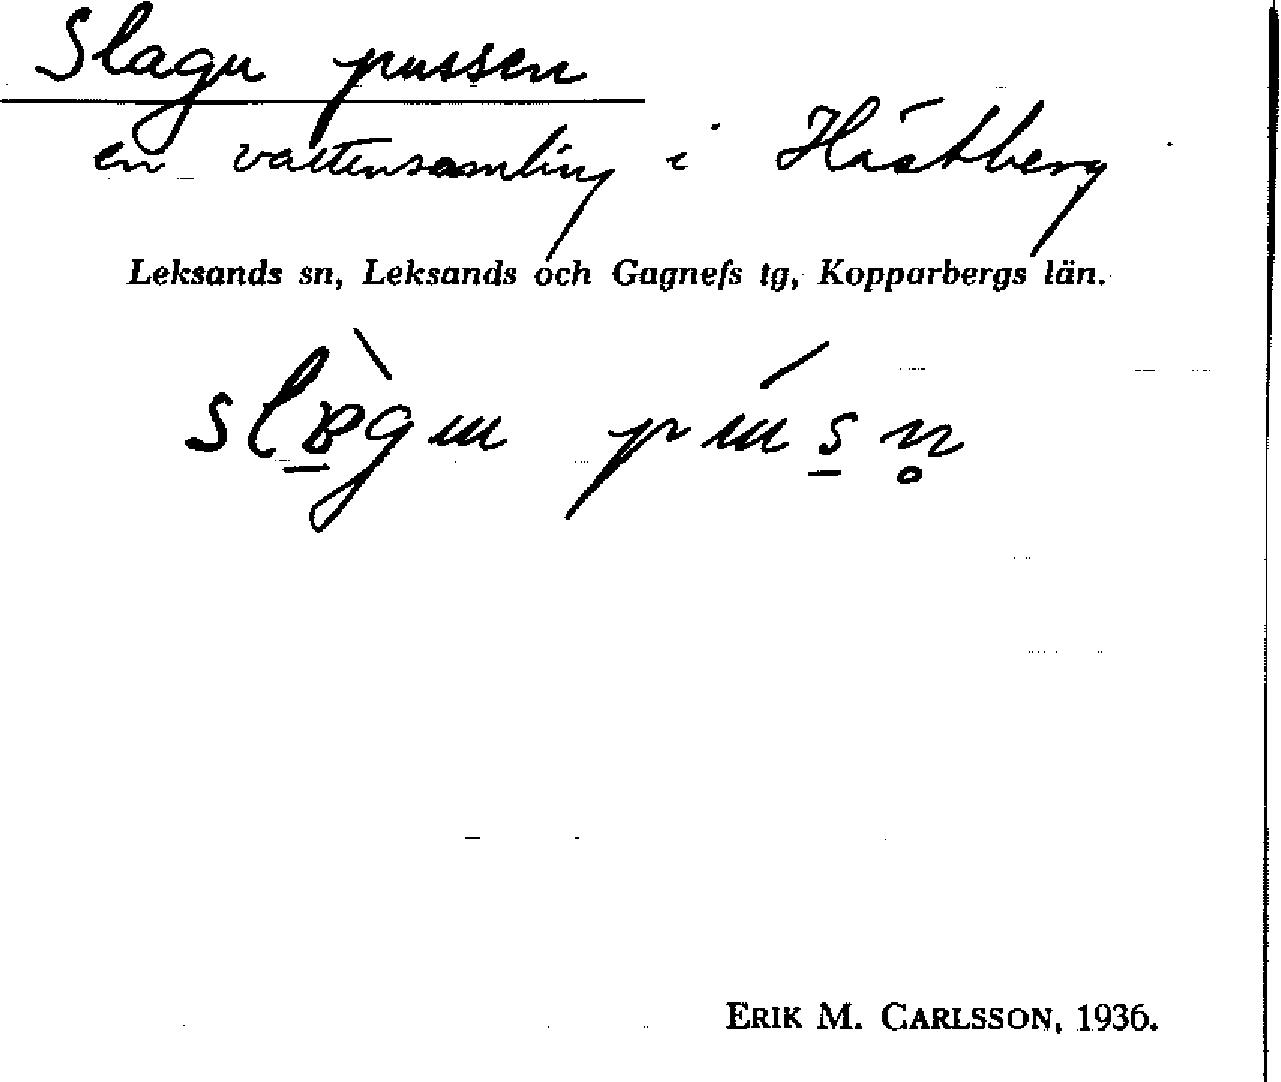 Slagu pussen
en vattensamling i Hästberg
Leksands sn, Leksands och Gagnefs tg, Kopparbergs län.
ERIK M. CARLSSON, 1936.